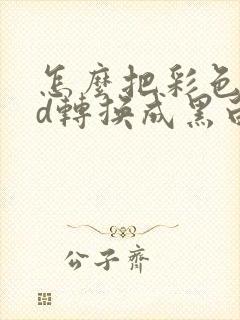 怎麼把彩色
d轉換成黑白
公子齊